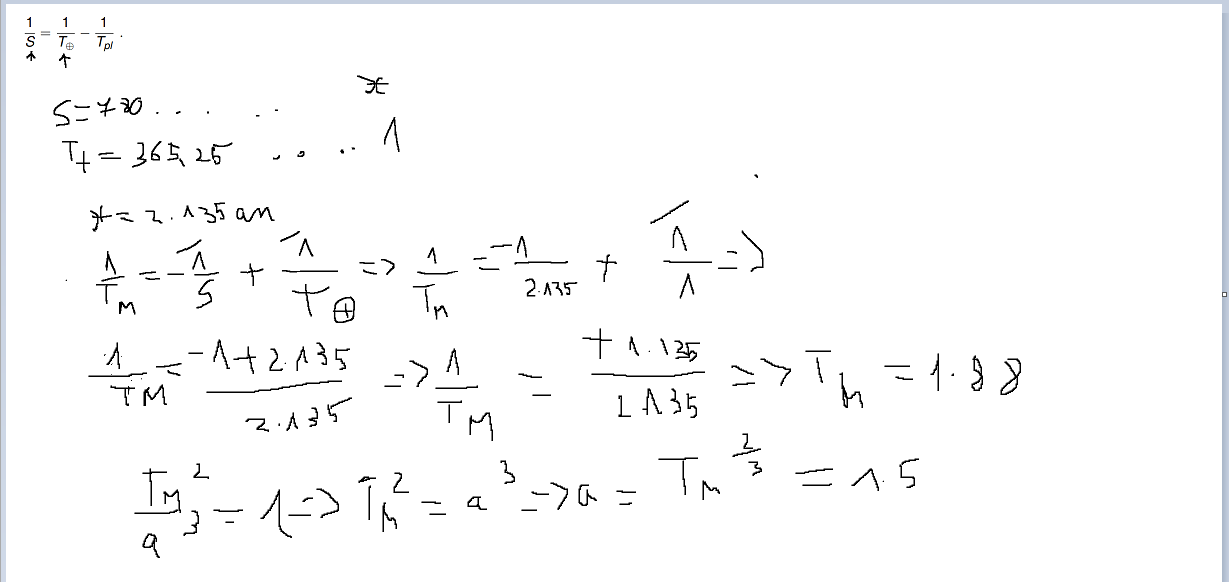 1/S = 1/T⊕ − 1/Tpl .
S = 780 . . . . .
T+ = 365,25 . . . . . 1
x = 2.135 an
1/TM = −1/S + 1/T⊕ => 1/TM = −1/2.135 + 1/1 =>
1/TM = −1+2.135/2.135 => 1/TM = +1.135/2.135 => TM = 1.88
TM²/a³ = 1 => TM² = a³ => a = TM^2/3 = 1.5